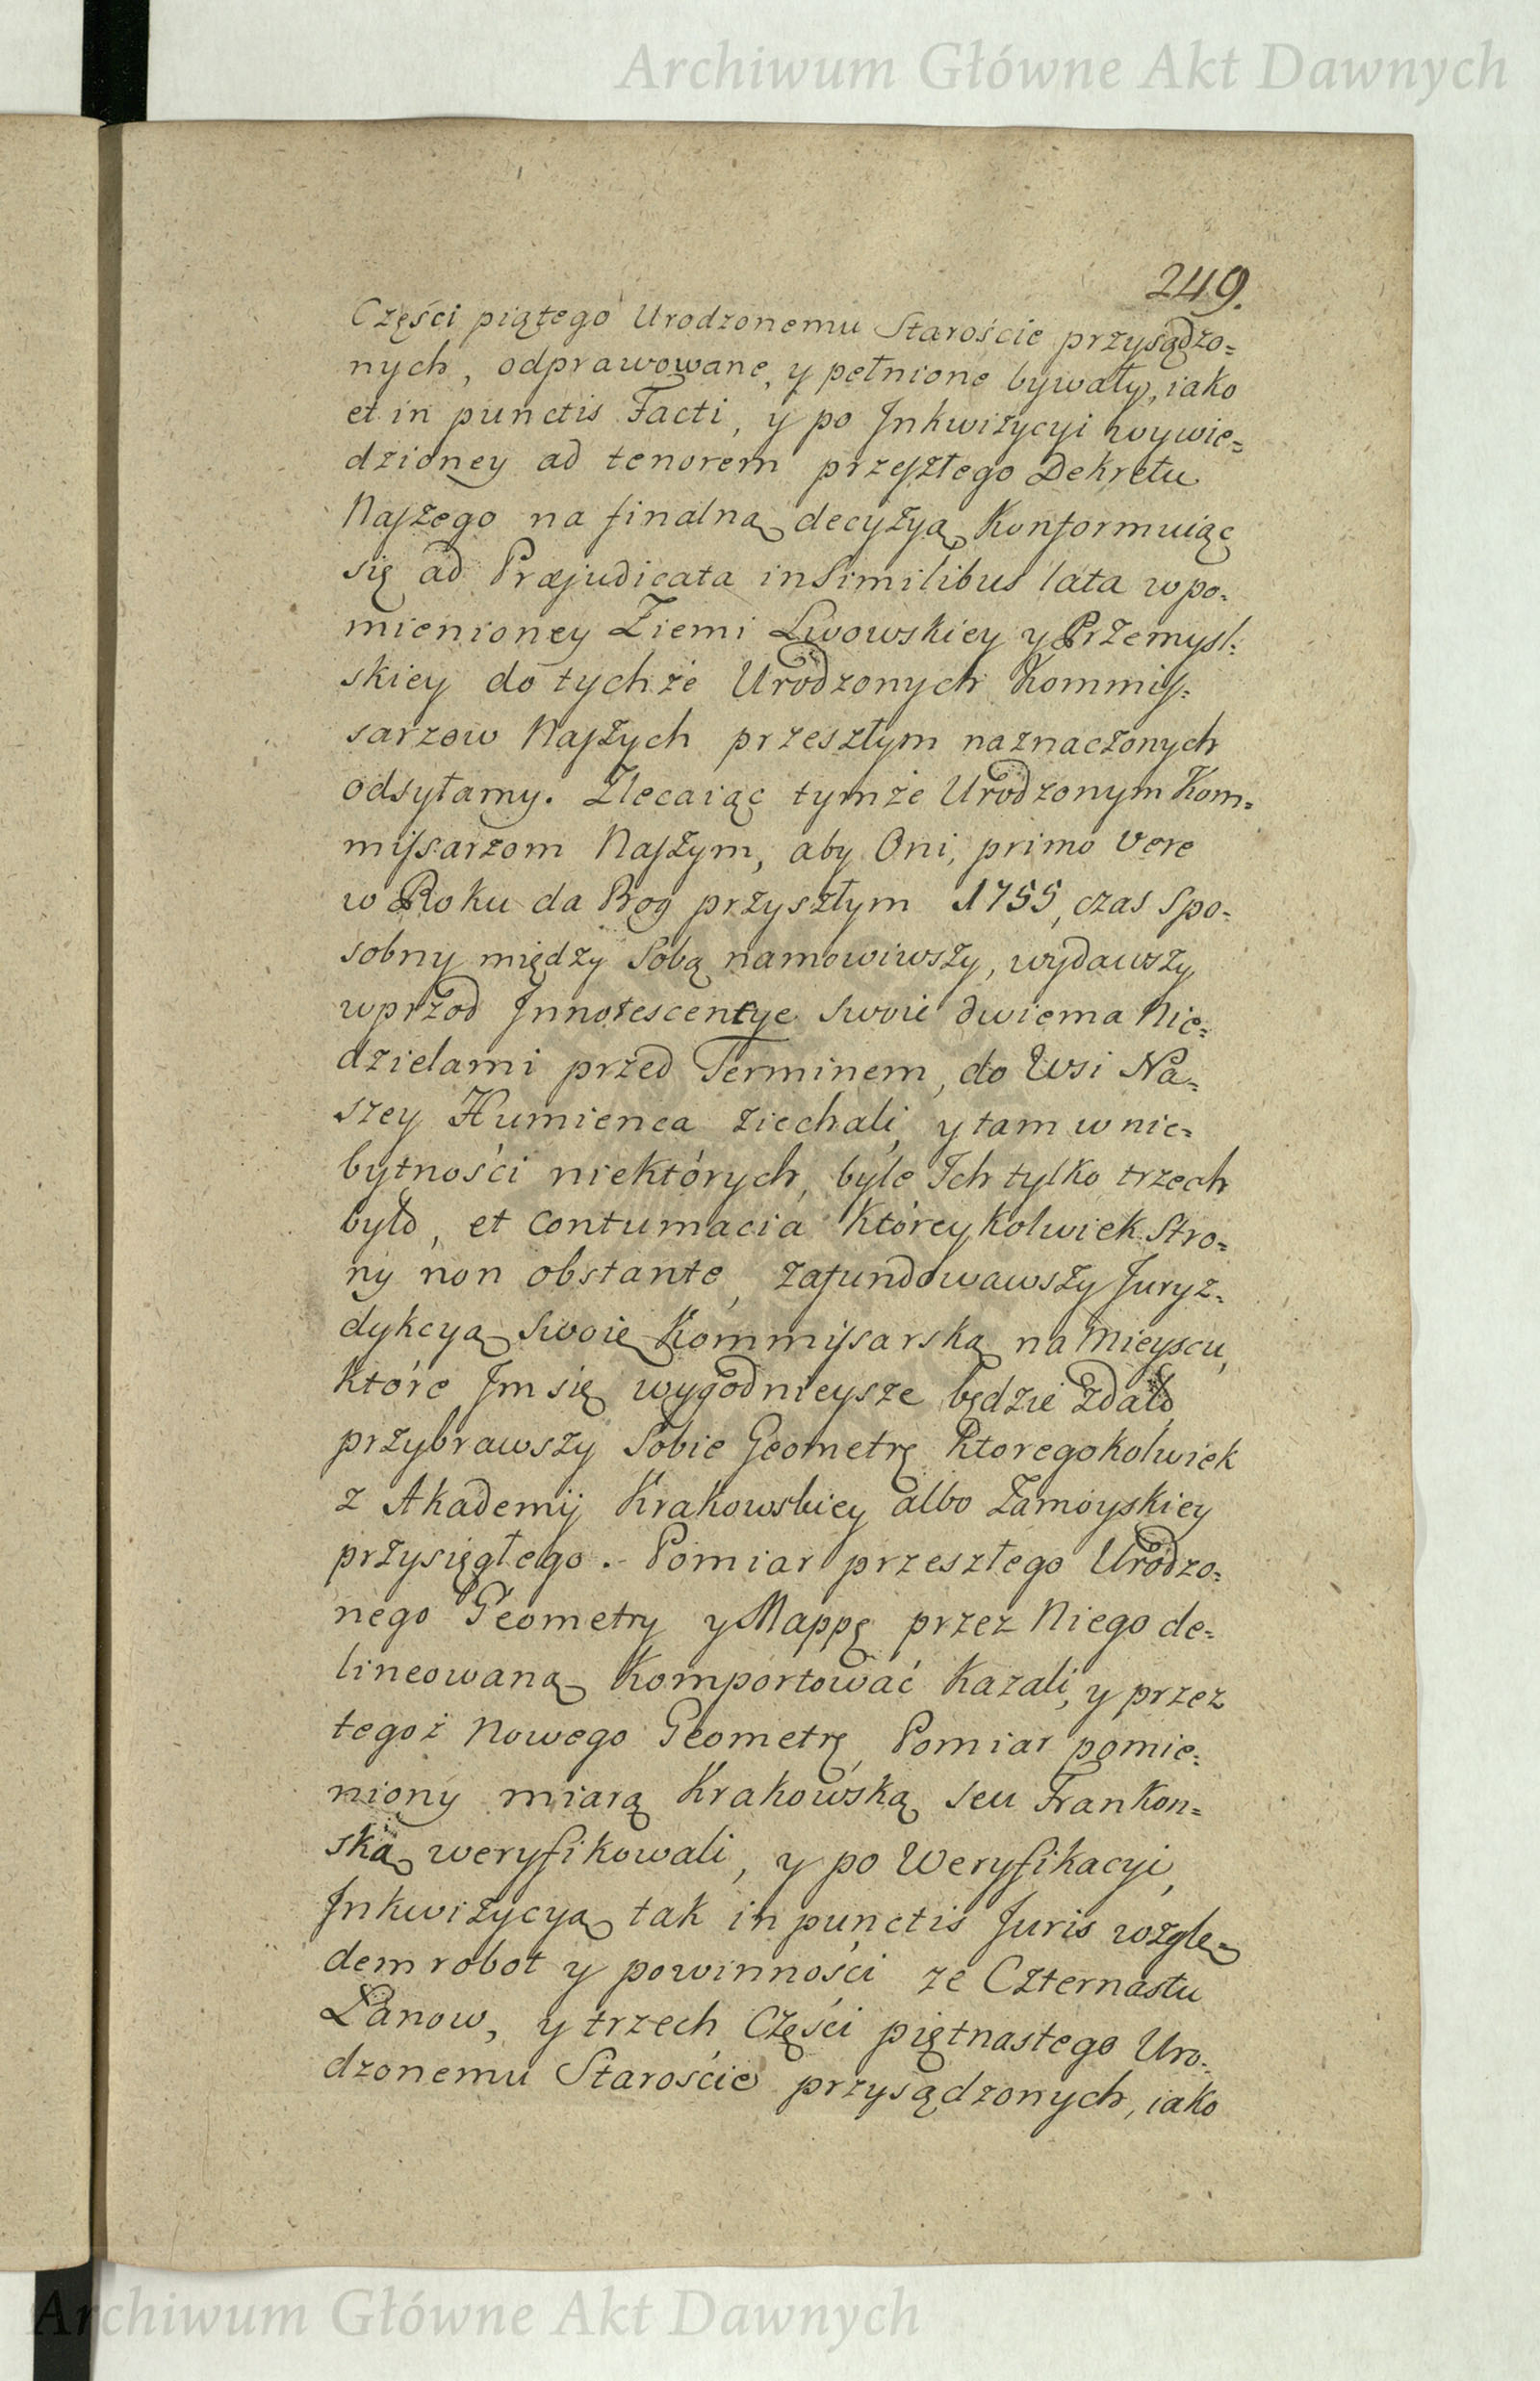 Archiwum Główne Akt Dawnych
249.
Części piątego Urodzonemu Staroście przysądzo=
nych, odprawowane, y pełnione bywały, iako
et in punctis Facti, y po Inkwizycyi wywie=
dzioney ad tenorem przeszłego Dekretu
Naszego na finalną decyzyą Konformuiąc
się ad Præjudicata in Similibus lata w po=
mienioney Ziemi Lwowskiey y Przemysl=
skiey do tychże Urodzonych Kommis=
sarzow Naszych przeszłym naznaczonych
odsyłamy. Zlecaiąc tymże Urodzonym Kom=
missarzom Naszym, aby Oni, primo Vere
w Roku da Bog przyszłym 1755, czas Spo=
sobny między Sobą namowiwszy, wydawszy
wprzod Innotescencye Swoie dwiema Nie=
dzielami przed Terminem, do Wsi Na=
szey Humienca ziechali, y tam w nie=
bytności niektórych, byle Ich tylko trzech
było, et contumacia któreykolwiek Stro=
ny non obstante, zafundowawszy Juryz=
dykcyą Swoię Kommissarską na Mieyscu,
które Im się wygodnieysze będzie zdało
przybrawszy Sobie Geometrę ktoregokolwiek
z Akademij Krakowskiey albo Zamoyskiey
przysięgłego. Pomiar przeszłego Urodzo=
nego Geometry y Mappę przez Niego de=
lineowaną Komportować kazali, y przez
tegoż Nowego Geometrę, Pomiar pomie=
niony miarą Krakowską seu Frankon=
ską weryfikowali, y po Weryfikacyi,
Inkwizycyą tak in punctis Juris wzglę=
dem robot y powinności ze Czternastu
Łanow, y trzech Części piętnastego Uro=
dzonemu Staroście przysądzonych, iako
Archiwum Główne Akt Dawnych